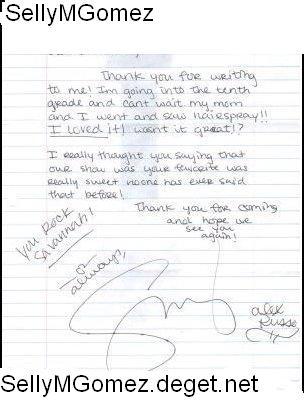 SellyMGomez
Thank you for writing
to me! Im going into the tenth
grade and cant wait my mom
and I went and saw hairspray!!
I loved it! wasnt it great!?
I really thought you saying that
our show was your favorite was
really sweet noone has ever said
that before!
Thank you for coming
and hope we
see you
again!
You Rock
Savannah!
always,
alex
Russo
SellyMGomez.deget.net